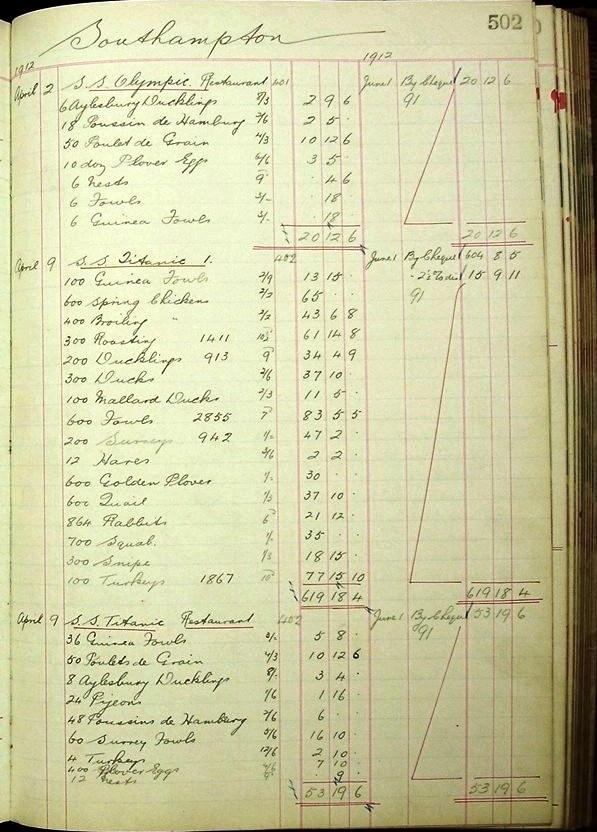 502
Southampton
1912 1912
April 2 S.S. Olympic. Restaurant 401 June 1 By Cheque 20 12 6
6 Aylesbury Ducklings 8/3 2 9 6 91
18 Poussin de Hamburg 2/6 2 5 ·
50 Poulet de Grain 4/3 10 12 6
10 doz Plover Eggs 6/6 3 5 ·
6 nests 9 · 4 6
6 Fowls 3/- · 18 ·
6 Guinea Fowls 3/- · 18 ·
20 12 6 20 12 6
April 9 S.S. Titanic 1. 402 June 1 By Cheque 604 8 5
100 Guinea Fowls 2/9 13 15 · 15 9 11
600 Spring Chickens 2/2 65 · · 91
400 Broiling " 2/2 43 6 8
300 Roasting 1411 61 14 8
200 Ducklings 913 9 34 4 9
300 Ducks 2/6 37 10 ·
100 Mallard Ducks 2/3 11 5 ·
600 Fowls 2855 7 83 5 5
200 Surreys 942 1/- 47 2 ·
12 Hares 3/6 2 2 ·
600 Golden Plover 1/- 30 · ·
600 Quail 1/3 37 10 ·
864 Rabbits 6 21 12 ·
700 Squab. 1/- 35 · ·
300 Snipe 1/3 18 15 ·
100 Turkeys 1867 10 77 15 10
619 18 4 619 18 4
April 9 S.S. Titanic Restaurant 402 June 1 By Cheque 53 19 6
36 Guinea Fowls 3/- 5 8 · 91
50 Poulets de Grain 4/3 10 12 6
8 Aylesbury Ducklings 8/- 3 4 ·
24 Pigeons 1/6 1 16 ·
48 Poussins de Hamburg 2/6 6 · ·
60 Surrey Fowls 5/6 16 10 ·
4 Turkeys 12/6 2 10 ·
400 Plover Eggs 4/6 7 10 ·
12 nests 9 · 9 ·
53 19 6 53 19 6